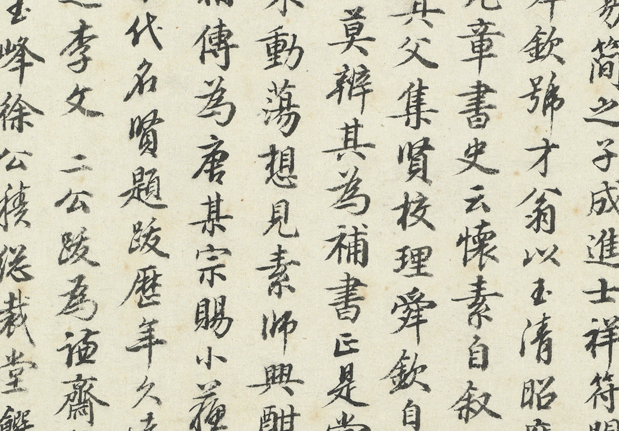 易簡之子成進士祥符
舜欽號才翁以玉清昭應
元章書史云懷素自叙
其父集賢校理舜欽自
莫辨其為補書正是當
動蕩想見素師興酣
傳為唐某宗賜小蘇
代名賢題跋歷年久遠
李文二公跋為謙齋
玉峰徐公積總裁堂饌